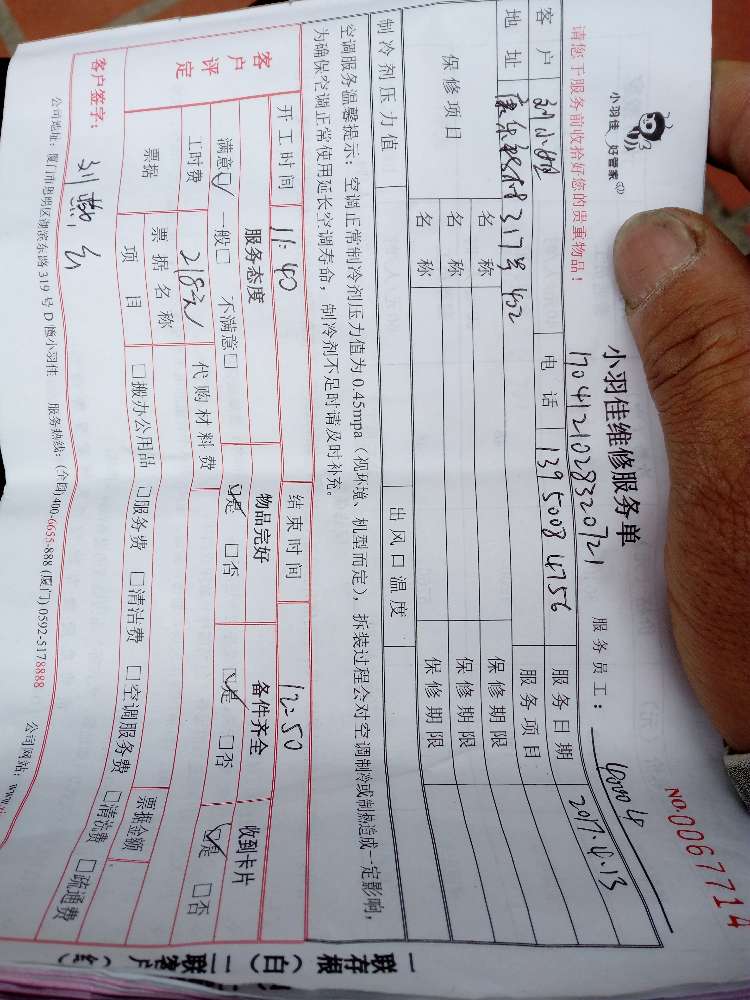 小羽佳 好管家
请您于服务前收拾好您的贵重物品!
小羽佳维修服务单
NO.0067714
1704121028320721
服务员工:
客户 刘小姐 电话 13950084756 服务日期 2017.4.13
地址 317号402 服务项目
保修项目 名称 保修期限
名称 保修期限
名称 保修期限
制冷剂压力值 出风口温度
空调服务温馨提示:空调正常制冷剂压力值为0.45mpa(视环境、机型而定),拆装过程会对空调制冷或制热造成一定影响,
为确保空调正常使用延长空调寿命,制冷剂不足时请及时补充。
开工时间 11:40 结束时间 12:50
客户评定 服务态度 物品完好 备件齐全 收到卡片
满意☑ 一般□ 不满意□ ☑是 □否 ☑是 □否 ☑是 □否
工时费 218元 代购材料费
票据 票据名称 票据金额
项目 □搬办公用品 □服务费 □清洁费 □空调服务费 □清洗费 □疏通费
客户签字:
公司地址:厦门市思明区湖滨东路319号D幢小羽佳 服务热线:(全国)400-6655-888 (厦门)0592-5178888 公司网站:
一联存根(白) 二联客户(红)